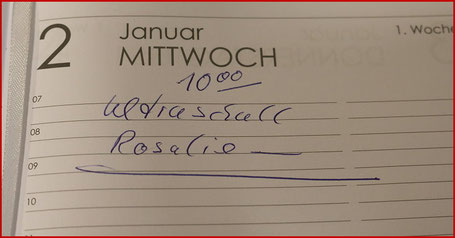 2 Januar
MITTWOCH
1. Woche
10 00
07
Ultraschall
08
Rosalie
09
10